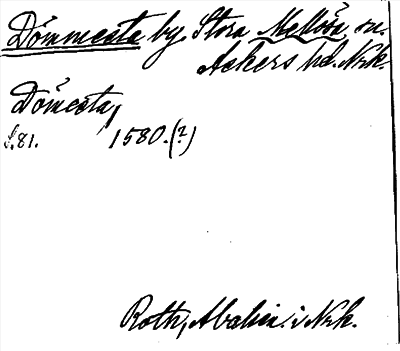 Dömmesta by Stora Mellösa sn.
Askers hd. Nrk.
Dömesta,
s. 81. 1580.(?)
Roth, Abalien. i Nrk.